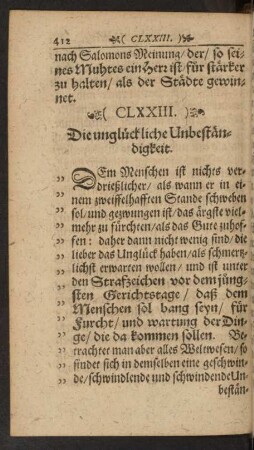 412 ( CLXXIII. )
nach Salomons Meinung/ der/ so sei-
nes Muhtes ein Herr ist/ für stärker
zu halten/ als der Städte gewin-
net.
( CLXXIII. )
Die unglückliche Unbestän-
digkeit.
DEm Menschen ist nichts ver-
„ drießlicher/ als wann er in ei-
„ nem zweiffelhafften Stande schweben
„ sol/ und gezwungen ist/ das ärgste viel-
„ mehr zu fürchten/ als das Gute zuhof-
„ fen: daher dann nicht wenig sind/ die
„ lieber das Unglück haben/ als schmertz-
„ lichst erwarten wollen/ und ist unter
„ den Strafzeichen vor dem jüng-
„ sten Gerichtstage/ daß dem
„ Menschen sol bang seyn/ für
„ Furcht/ und wartung der Din-
„ ge/ die da kommen sollen. Be-
„ trachtet man aber alles Weltwesen/ so
„ findet sich in demselben eine geschwin-
„ de/ schwindlende und schwindende Un-
bestän-